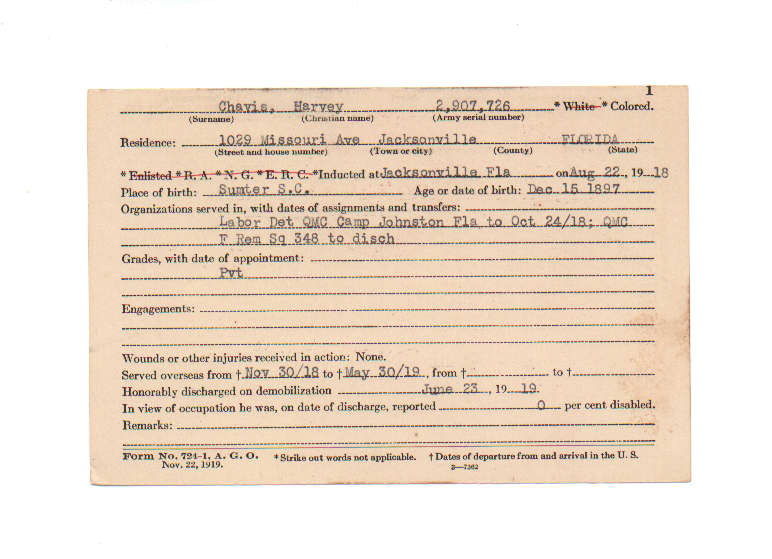 1
Chavis, Harvey 2,907,726 * White * Colored.
(Surname) (Christian name) (Army serial number)
Residence: 1029 Missouri Ave Jacksonville FLORIDA
(Street and house number) (Town or city) (County) (State)
* Enlisted * R. A. * N. G. * E. R. C. * Inducted at Jacksonville Fla on Aug 22, 1918
Place of birth: Sumter S.C. Age or date of birth: Dec 15 1897
Organizations served in, with dates of assignments and transfers:
Labor Det QMC Camp Johnston Fla to Oct 24/18; QMC
F Rem Sq 348 to disch
Grades, with date of appointment:
Pvt
Engagements:
Wounds or other injuries received in action: None.
Served overseas from † Nov 30/18 to † May 30/19, from † to †
Honorably discharged on demobilization June 23, 1919
In view of occupation he was, on date of discharge, reported 0 per cent disabled.
Remarks:
Form No. 724-1, A. G. O. * Strike out words not applicable. † Dates of departure from and arrival in the U. S.
Nov. 22, 1919. 3—7362